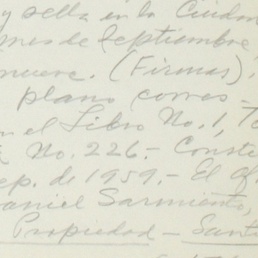 y sella en la Ciudad
mes de Septiembre
nueve. (Firmas).
plano corres-
en el Libro No. 1, To
No. 226.- Consti
ep. de 1959.- El Of
aniel Sarmiento,
Propiedad - Sant